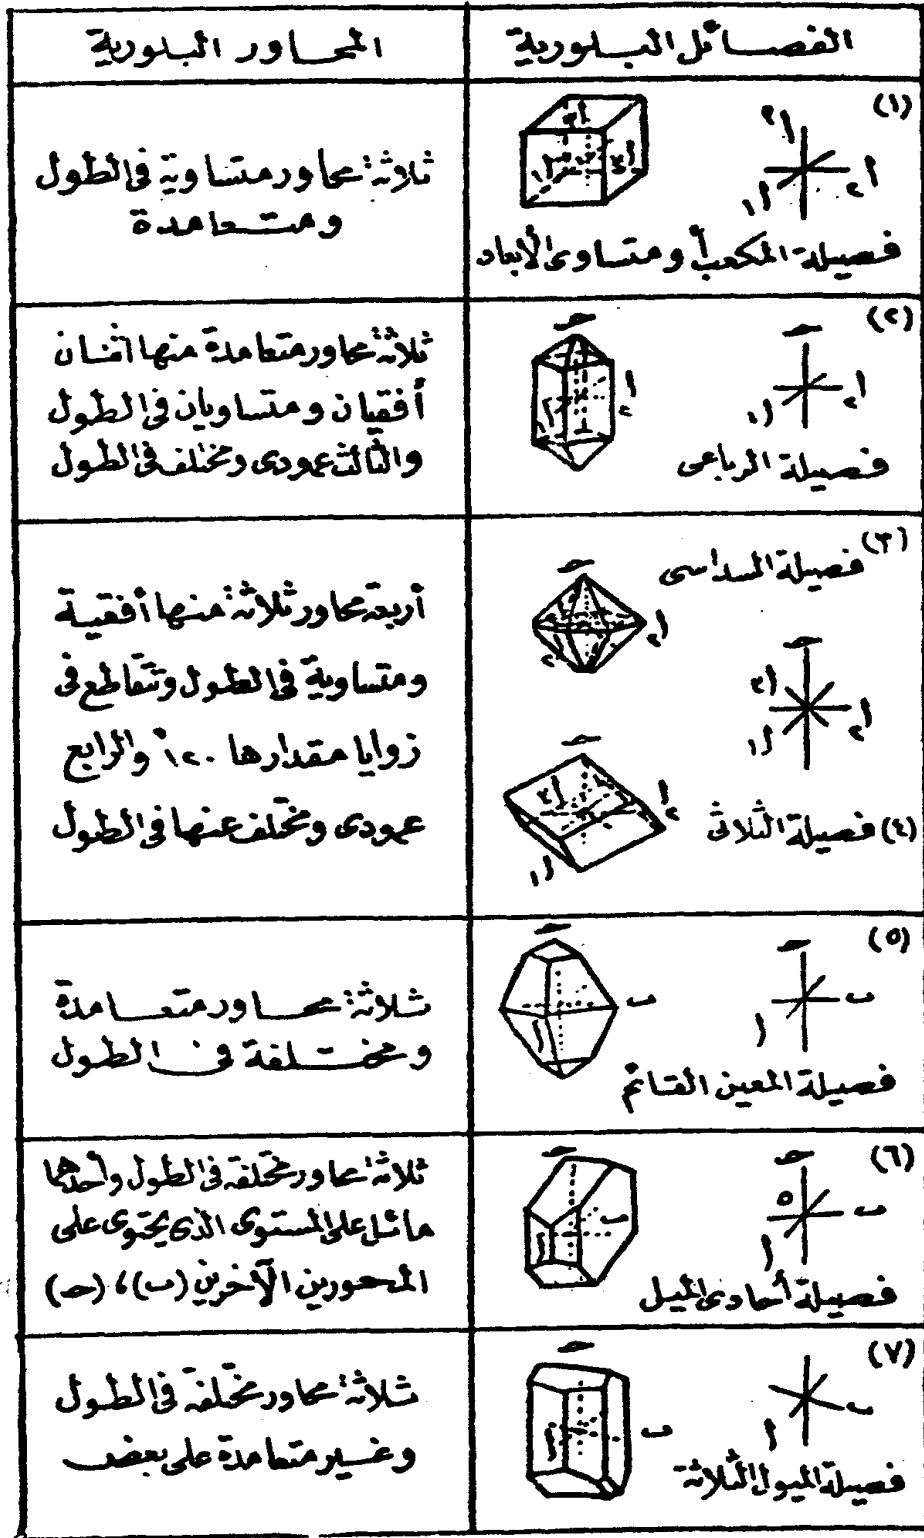 الفصائل البلورية
المحاور البلورية
(١)
أ٣
أ٢
أ١
أ٣
أ١
أ٢
فصيلة المكعب أو متساوى الأبعاد
ثلاثة محاور متساوية فى الطول
ومتعامدة
(٢)
حـ
أ٢
أ١
حـ
أ٢
أ١
فصيلة الرباعى
ثلاثة محاور متعامدة منها اثنان
أفقيان ومتساويان فى الطول
والثالث عمودى ومختلف فى الطول
(٣) فصيلة السداسى
حـ
أ٢
حـ
أ٣
أ٢
أ١
حـ
أ٣
أ٢
أ١
(٤) فصيلة الثلاثى
أربعة محاور ثلاثة منها أفقية
ومتساوية فى الطول وتتقاطع فى
زوايا مقدارها ١٢٠° والرابع
عمودى ومختلف عنها فى الطول
(٥)
حـ
ب
أ
حـ
ب
أ
فصيلة المعين القائم
ثلاثة محاور متعامدة
ومختلفة فى الطول
(٦)
حـ
ب
أ
حـ
ب
أ
فصيلة أحادى الميل
ثلاثة محاور مختلفة فى الطول وأحدهما
مائل على المستوى الذى يحتوى على
المحورين الآخرين (ب)، (حـ)
(٧)
ب
أ
حـ
ب
أ
فصيلة الميول الثلاثة
ثلاثة محاور مختلفة فى الطول
وغير متعامدة على بعض